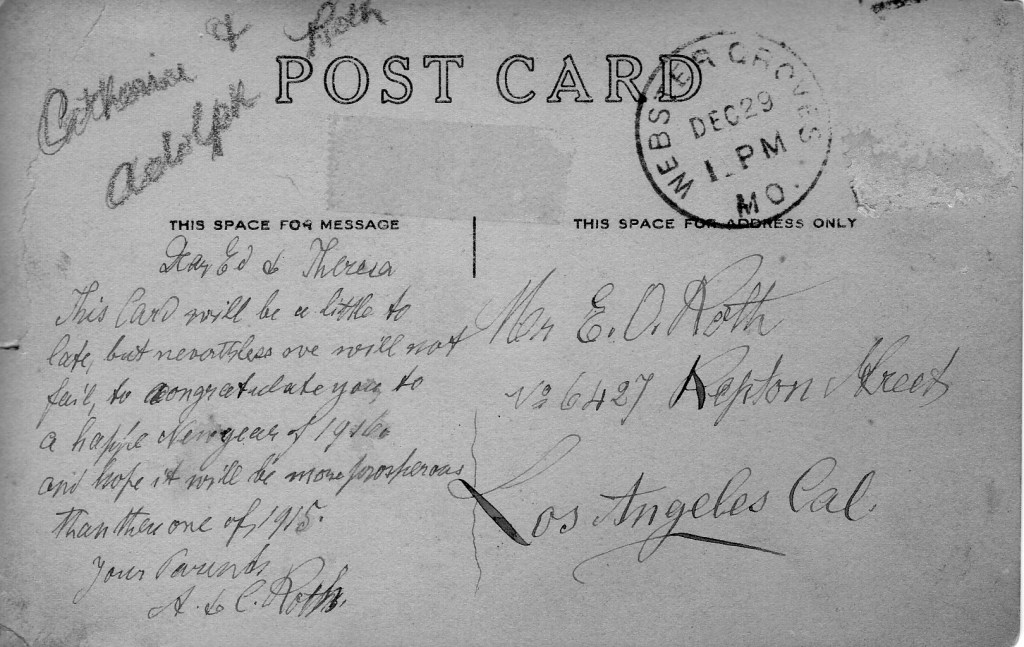 Catherine &
Adolph Roth
POST CARD
WEBSTER GROVES
DEC 29
1 PM
MO.
THIS SPACE FOR MESSAGE
THIS SPACE FOR ADDRESS ONLY
Dear Ed & Theresa
This Card will be a little to
late, but neverthless we will not
fail, to congratulate you, to
a happe New year of 1916.
and hope it will be more prosperous
than the one of, 1915.
Your Parents
A. & C. Roth.
Mr E. O. Roth
No 6427 Repton Street
Los Angeles Cal.